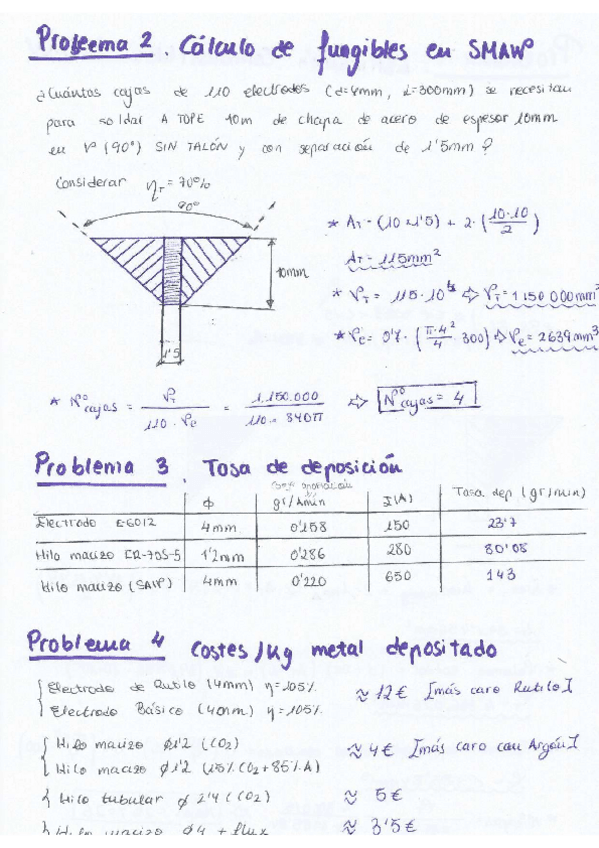 Problema 2. Cálculo de fungibles en SMAW
¿Cuántas cajas de 110 electrodos (d=4mm, L=300mm) se necesitan
para soldar A TOPE 10m de chapa de acero de espesor 10mm
en V (90°) SIN TALÓN y con separación de 1'5mm?
Considerar ηT = 70%
90°
10mm
1'5
* AT = (10 × 1'5) + 2 · (10·10 / 2)
AT = 115mm²
* VT = 115 · 10⁴ ⇨ VT = 1150 000 mm³
* Ve = 0'7 · (π·4² / 4 · 300) ⇨ Ve = 2639 mm³
* Nº cajas = VT / 110 · Ve = 1.150.000 / 110 · 840π ⇨ Nº cajas = 4
Problema 3. Tasa de deposición
φ gr/Amin I(A) Tasa dep (gr/min)
Electrodo E-6012 4mm 0'158 150 23'7
Hilo macizo ER-70S-5 1'2mm 0'286 280 80'08
Hilo macizo (SAW) 4mm 0'220 650 143
Problema 4 Costes/Kg metal depositado
Electrodo de Rutilo (4mm) η=105%
Electrodo Básico (4mm) η=105%
≈ 12€ [más caro Rutilo]
Hilo macizo φ1'2 (CO2)
Hilo macizo φ1'2 (15% CO2+85% A)
≈ 4€ [más caro con Argón]
Hilo tubular φ 2'4 (CO2) ≈ 5€
Hilo macizo φ4 + flux ≈ 3'5€